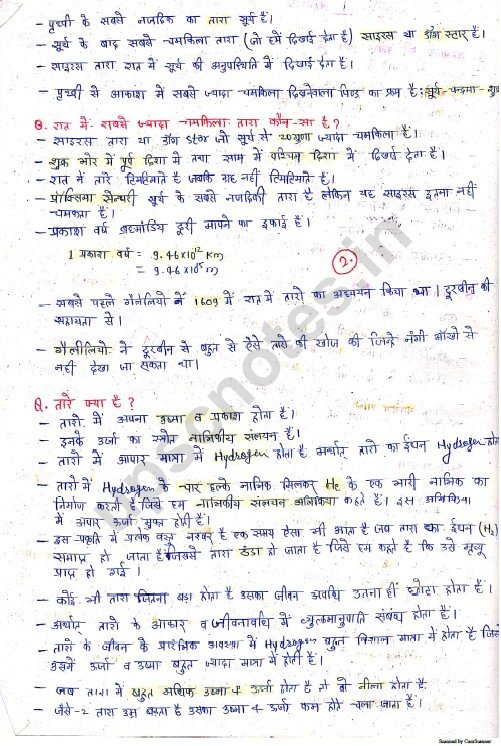 - पृथ्वी के सबसे नजदिक का तारा सूर्य है।
- सूर्य के बाद सबसे चमकिला तारा (जो हमें दिखाई देता है) साइरस या डॉग स्टार है।
- साइरस तारा रात में सूर्य की अनुपस्थिति में दिखाई देता है।
- पृथ्वी से आकाश में सबसे ज्यादा चमकिला दिखनेवाला पिण्ड का क्रम है: सूर्य-चन्द्रमा-शुक्र
Q. रात में सबसे ज्यादा चमकिला तारा कौन-सा है?
- साइरस तारा या डॉग star जो सूर्य से 20गुणा ज्यादा चमकिला है।
- शुक्र भोर में पूर्व दिशा में तथा साम में पश्चिम दिशा में दिखाई देता है।
- रात में तारे टिमटिमाते है जबकि ग्रह नहीं टिमटिमाते है।
- प्रोक्सिमा सेन्चुरी सूर्य के सबसे नजदिकी तारा है लेकिन यह साइरस इतना नहीं
चमकता है।
- प्रकाश वर्ष ब्रह्माण्डिय दूरी मापने का इकाई है।
1 प्रकाश वर्ष = 9.46×10¹² Km
= 9.46×10¹⁵ m
2.
- सबसे पहले गैलेलियो ने 1609 में रात में तारों का अध्ययन किया था। दूरबीन की
सहायता से।
- गैलीलियो ने दूरबीन से बहुत से ऐसे तारों की खोज की जिन्हे नंगी आँखो से
नहीं देखा जा सकता था।
upscnotes.in
Q. तारे क्या है?
- तारों में अपना उष्मा व प्रकाश होता है।
- इनके उर्जा का स्त्रोत नाभिकीय संलयन है।
- तारों में अपार मात्रा में Hydrogen होता है अर्थात् तारों का ईंधन Hydrogen होता
- तारों में Hydrogen के चार हल्के नाभिक मिलकर He के एक भारी नाभिक का
निर्माण करती है जिसे हम नाभिकीय संलयन अभिक्रिया कहते है। इस अभिक्रिया
में अपार उर्जा मुक्त होती है।
- इस प्रकृति में प्रत्येक वस्तु नश्वर है एक समय ऐसा भी आता है जब तारा का ईंधन (H₂)
समाप्त हो जाता है जिससे तारा ठंडा हो जाता है जिसे हम कहते है कि उसे मृत्यु
प्राप्त हो गई।
- कोई भी तारा जितना बड़ा होता है उसका जीवन अवधि उतना ही छोटा होता है।
- अर्थात् तारों के आकार व जीवनावधि में व्युत्क्रमानुपाति संबंध होता है।
- तारों के जीवन के प्रारंभिक अवस्था में Hydrogen बहुत विशाल मात्रा में होता है जिससे
उसमें उर्जा व उष्मा बहुत ज्यादा मात्रा में होती है।
- जब तारा में बहुत अधिक उष्मा व उर्जा होता है तो वो नीला होता है।
- जैसे-2 तारा उम्र बढता है उसका उष्मा व उर्जा कम होते चला जाता है।
Scanned by CamScanner